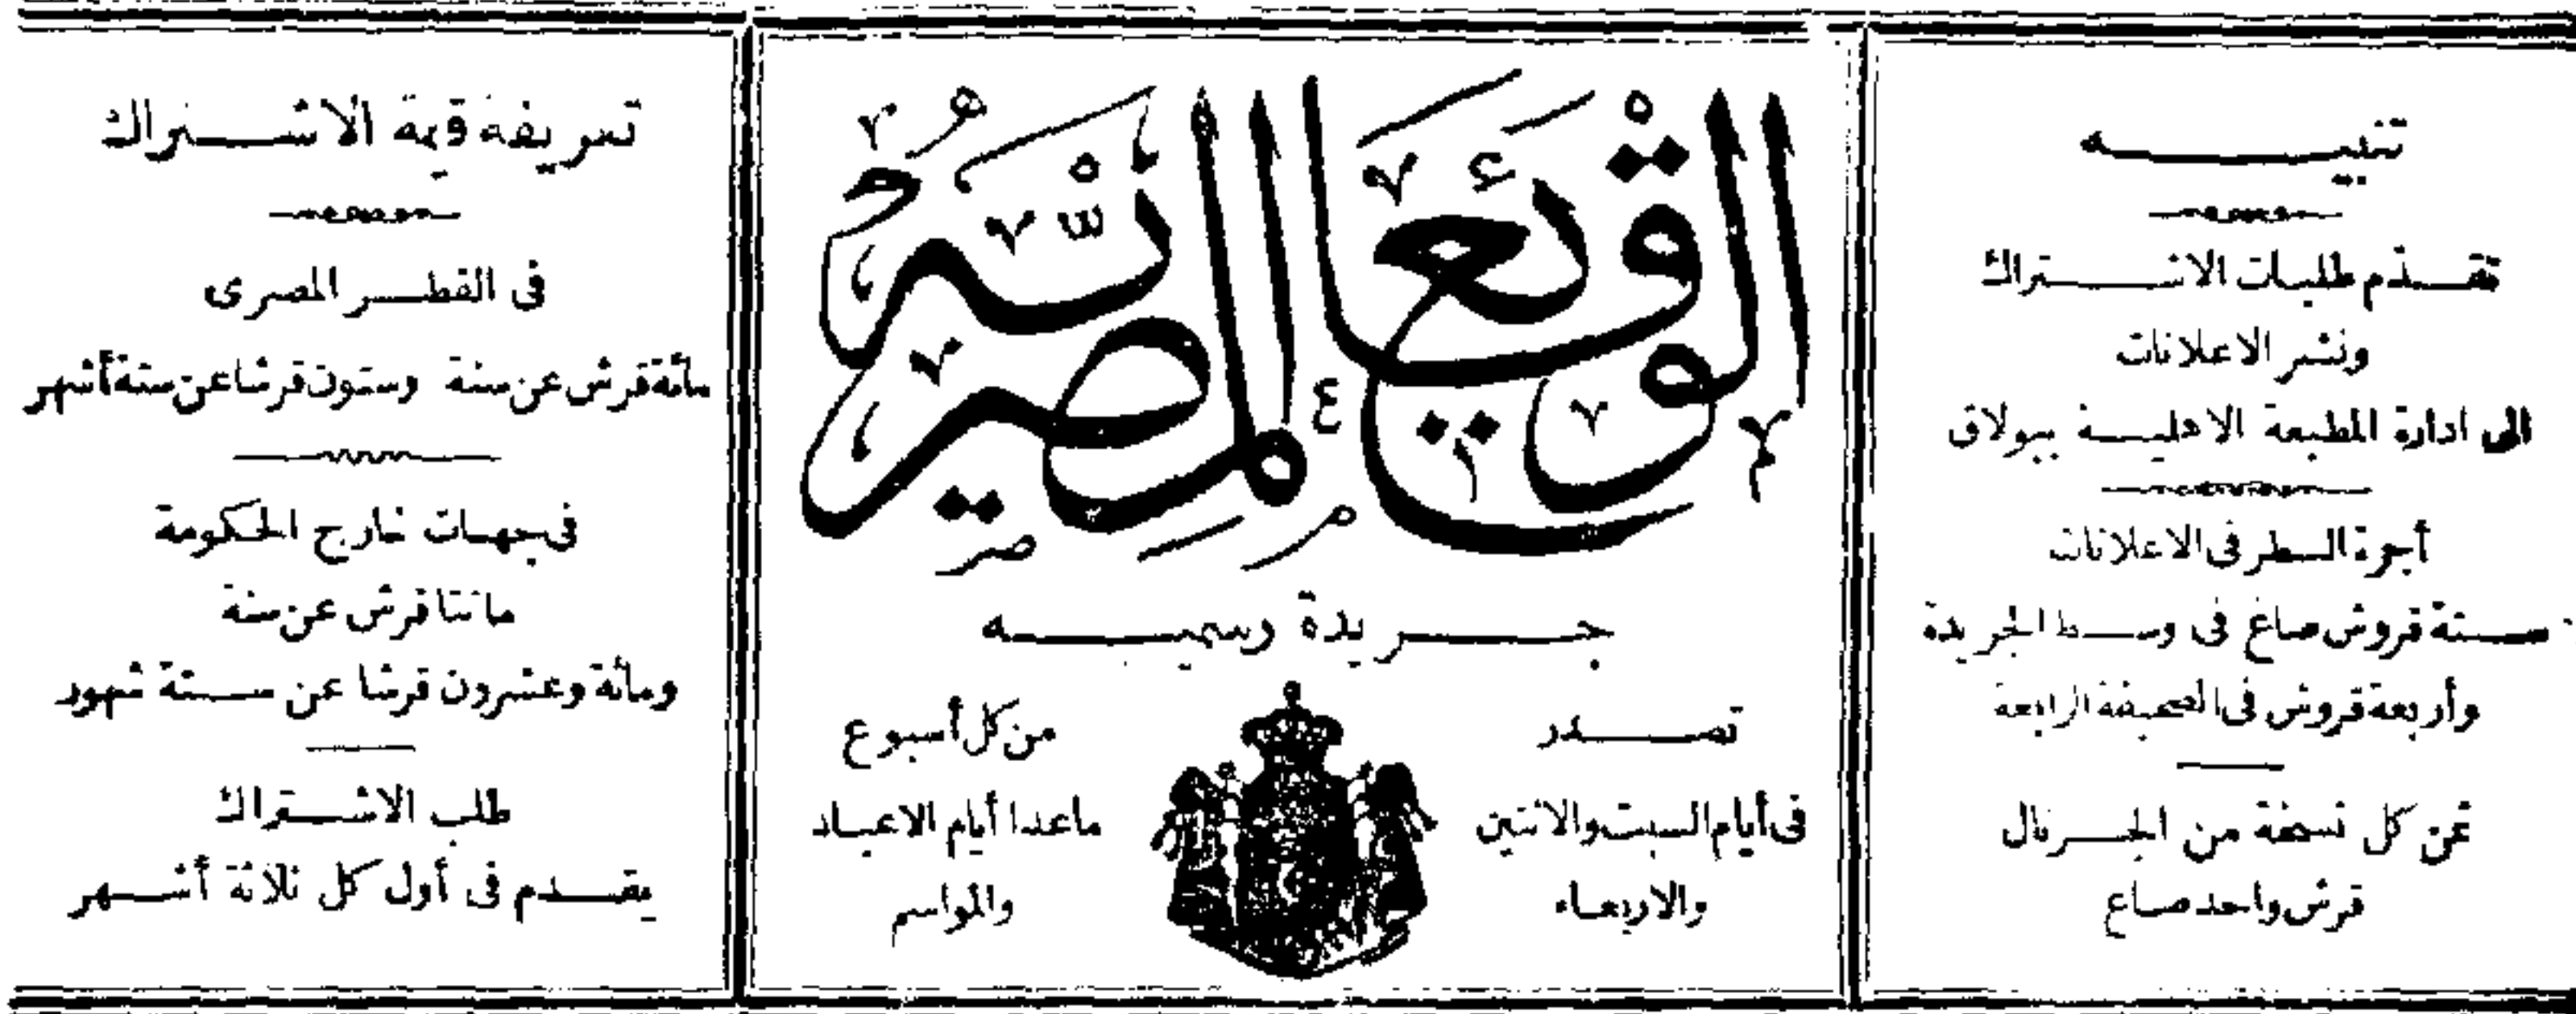 تنبيه
تقدّم طلبات الاشتراك
ونشر الاعلانات
الى ادارة المطبعة الاهلية ببولاق
أجرة السطر فى الاعلانات
ستة قروش صاغ فى وسط الجريدة
وأربعة قروش فى الصحيفة الرابعة
ثمن كل نسخة من الجرنال
قرش واحد صاغ
الوقائع المصرية
جريدة رسميه
تصدر
فى أيام السبت والاثنين
والاربعاء
من كل أسبوع
ماعدا أيام الاعياد
والمواسم
تعريفة قيمة الاشتراك
فى القطر المصرى
مائة قرش عن سنة وستون قرشا عن ستة أشهر
فى جهات خارج الحكومة
مائتا قرش عن سنة
ومائة وعشرون قرشا عن ستة شهور
طلب الاشتراك
يقدم فى أول كل ثلاثة أشهر